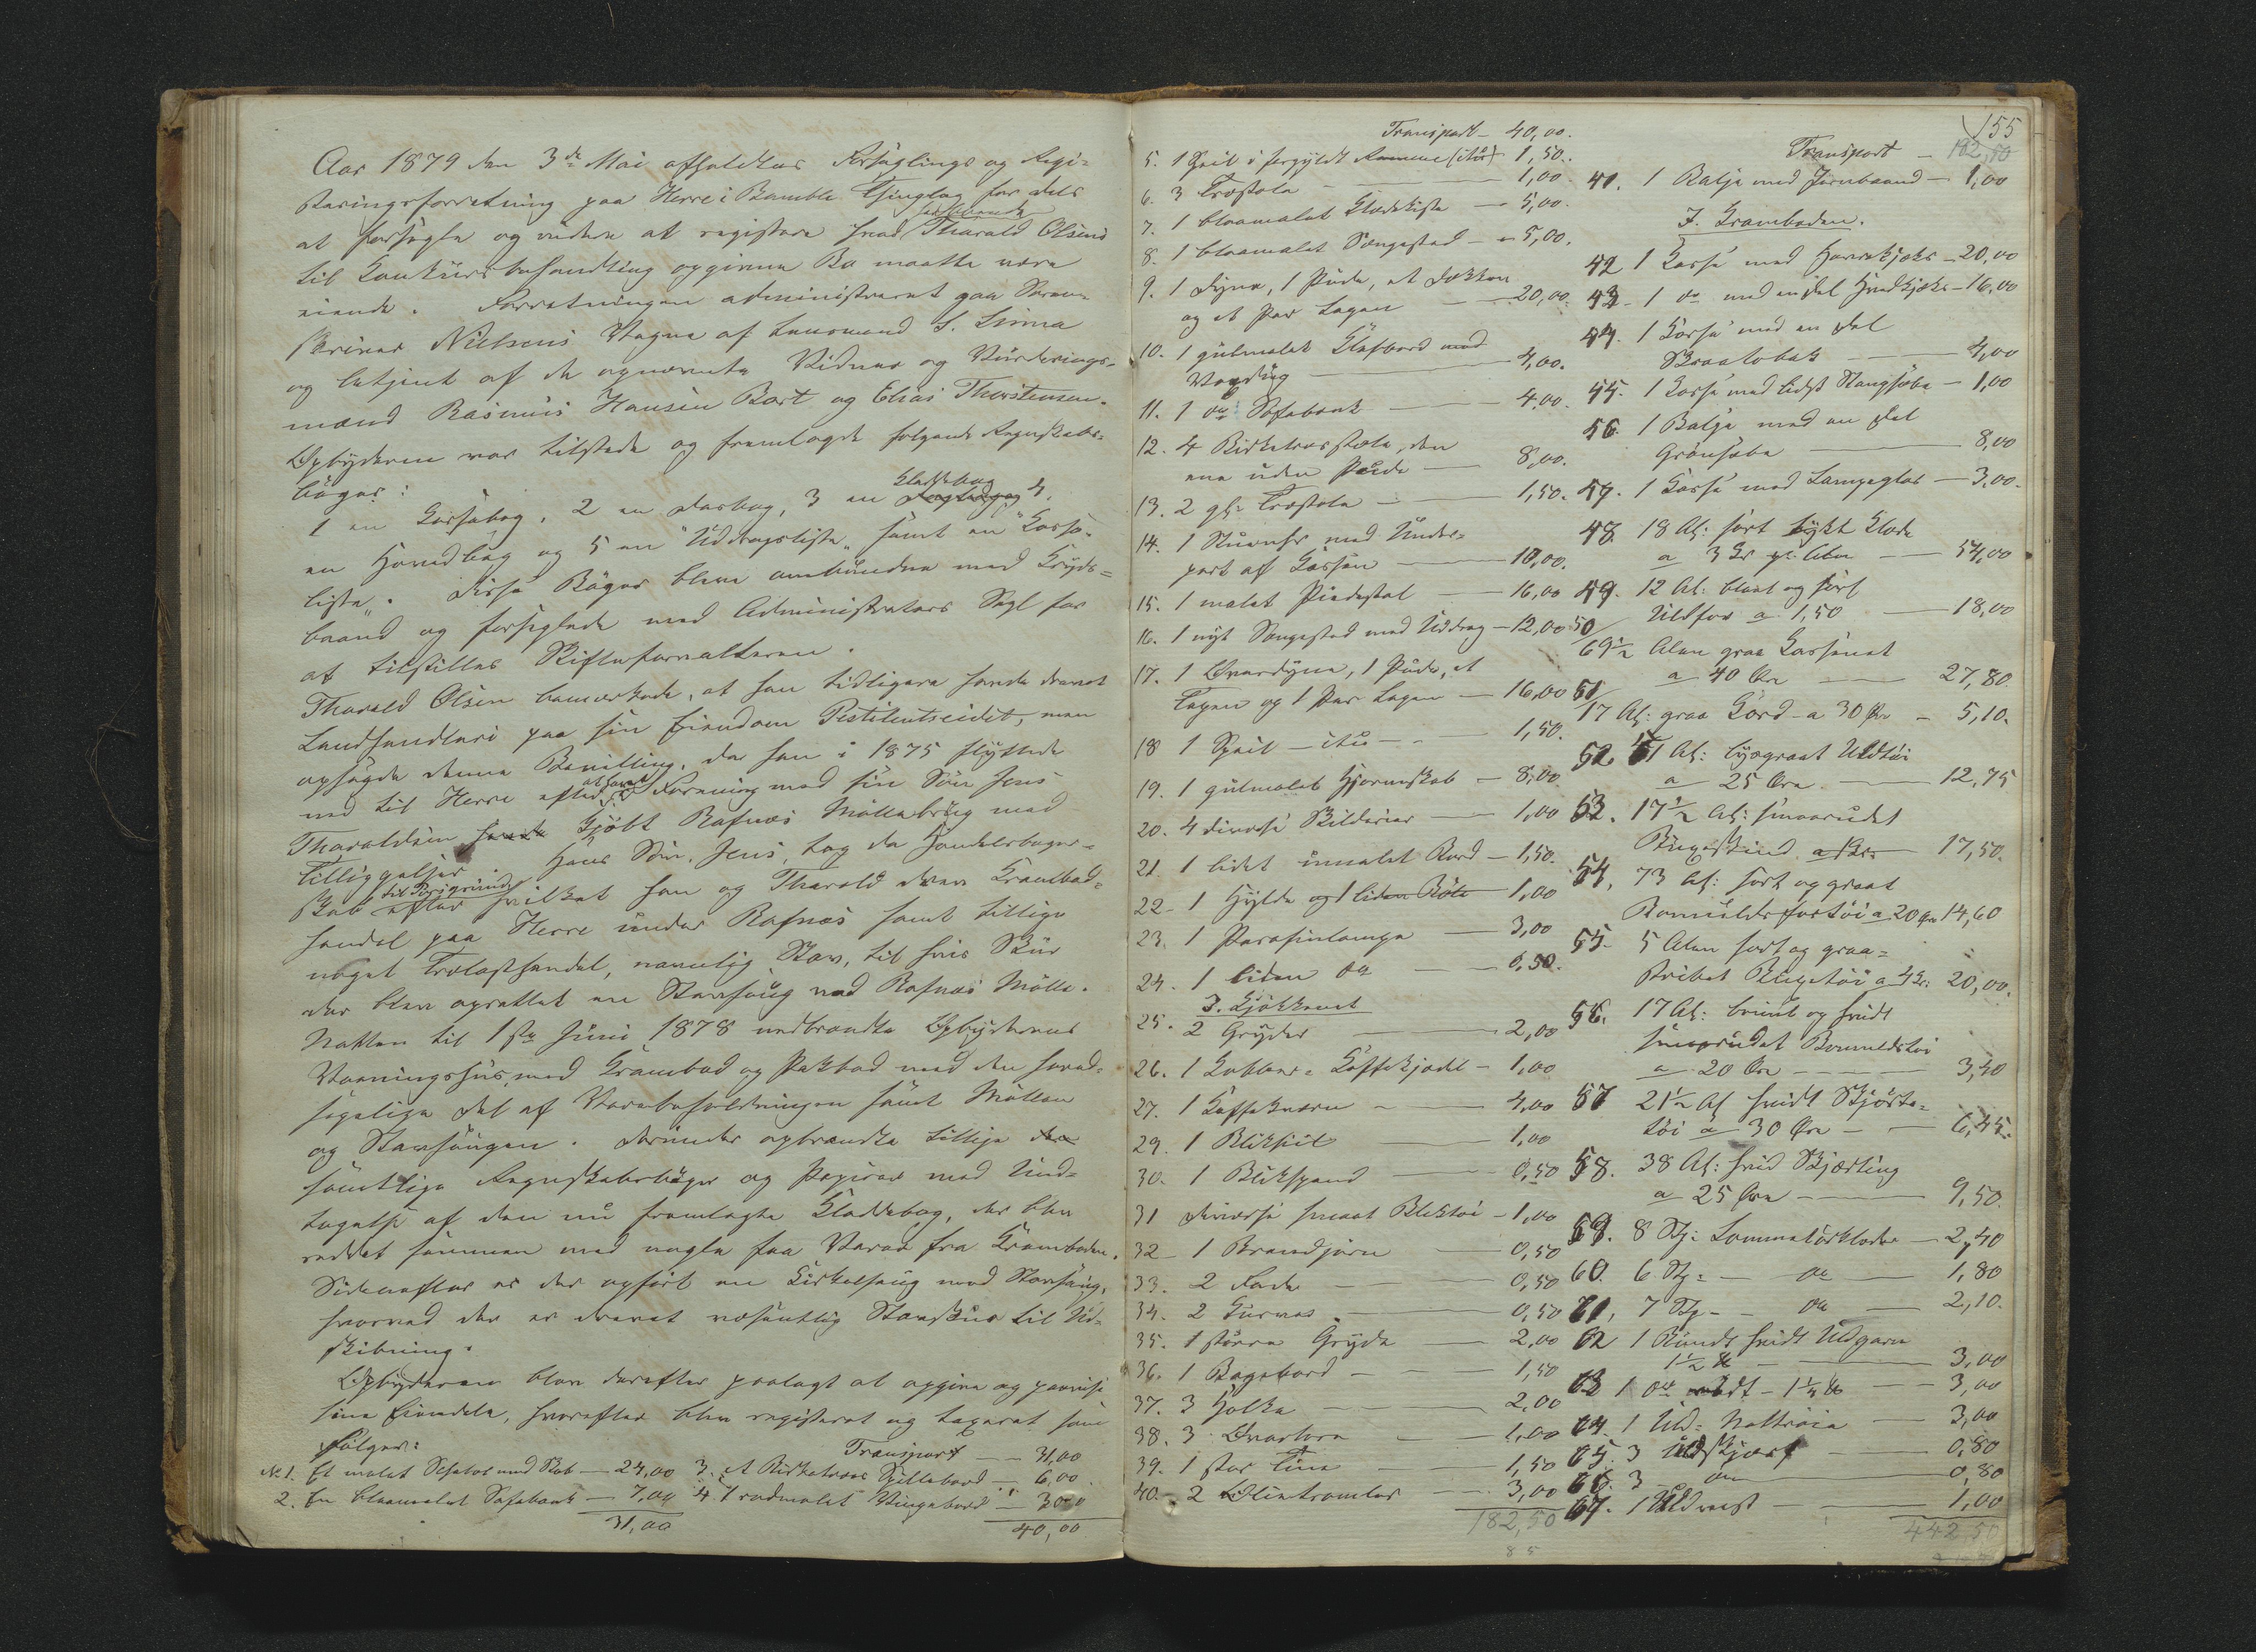 Aar 1879 den 3de Mai afholdtes Forseglings og Regi-
streringsforretning paa Herre i Bamble Thinglag for dels
at forsegle og videre at registrere hvad Tharald Olsens
til Konkursbehandling opgivne Bo maatte være
eiende. Forretningen administreret paa Soren-
skriver Nielsens Vegne af Lensmand S. Linna
og betjent af de opnævnte Vidner og Vurderings-
mænd Rasmus Hansen Bort og Elias Thorstensen.
Opbyderen var tilstede og fremlagde følgende Regnskabs-
bøger:
Kladdebog
1 en Kassabog, 2 en Dagbog, 3 en 4,
en Hovedbog og 5 en "Uddragsliste" samt en "Kassa-
liste". Disse Bøger bleve ombundne med Kryds-
baand og forseglede med Administrators Segl for
at tilstilles Skifteforvalteren.
Tharald Olsen bemærkede, at han tidligere havde drevet
Landhandleri paa sin Eiendom Pestilentseidet, men
opsagde denne Bevilling, da han i 1875 flyttede
at have
ned til Herre efter i Forening med sin Søn Jens
Tharaldsen havde kjøbt Rafnæs Møllebrug med
Tilliggelser. Hans Søn, Jens, tog da Handelsborger-
til Porsgrund
skab efter hvilket han og Tharald drev Krambod-
handel paa Herre under Rafnæs samt tillige
noget Trælasthandel, navnlig Stav, til hvis Skur
der blev oprettet en Stavsaug ved Rafnæs Mølle.
Natten til 1ste Juni 1878 nedbrændte Opbyderens
Vaaningshus, med Krambod og Pakbod med den hoved-
sagelige Del af Varebeholdningen samt Møllen
og Stavsaugen. Derunder opbrændte tillige
samtlige Regnskabsbøger og Papirer med Und-
tagelse af den nu fremlagte Kladdebog, der blev
reddet sammen med nogle faa Varer fra Kramboden.
Sidenefter er der opført en Cirkelsaug med Stavsaug,
hvorved der er drevet væsentlig Stavskur til Ud-
skibning.
Opbyderen blev derefter paalagt at opgive og paavise
sine Eiendele, hvorefter blev registreret og taxeret som
følger:
No 1. Et malet Schatol med Skab — 24,00
2. En blaamalet Sofabænk — 7,00
31,00
Transport — 31,00
3. Et Birketræes Spillebord — 6,00
4. 1 rødmalet Vingebord — 3,00
40,00
Transport — 40,00.
5. 1 Speil i forgyldt Ramme (itu) 1,50.
6. 3 Træstole — 1,00
7. 1 blaamalet Klædekiste — 5,00.
8. 1 blaamalet Sengested — 5,00.
9. 1 Dyne, 1 Pude, et Dækken
og et Par Lagen — 20,00.
10. 1 gulmalet Klafbord med
Voxdug — 4,00.
11. 1 do Sofabænk — 4,00.
12. 4 Birketræsstole, den
ene uden Pude — 8,00.
13. 2 gl. Træstole — 1,50.
14. 1 Stueuhr med Under-
part af Kassen — 10,00.
15. 1 malet Piedestal — 16,00
16. 1 nyt Sengested med Uddrag — 12,00
17. 1 Overdyne, 1 Pude, et
Tæppe og 1 Par Lagen — 16,00
18 1 Speil — itu — 1,50.
19. 1 gulmalet Hjørneskab — 8,00
20. 4 diverse Skilderier — 1,00
21 1 lidet umalet Bord — 1,50.
22 1 Hylde og 1 liden 1,00
23. 1 Parafinlampe — 3,00
24. 1 liden do — 0,50.
I. Kjøkkenet
25. 2 Gryder — 2,00
26. 1 Kobber-Kaffekjedel — 1,00
27. 1 Kaffekværn — 4,00
29. 1 — 1,00
30. 1 Blikspand — 0,50
31 Diverse smaat Bliktøi — 1,00
32 1 Brandjern — 0,50
33. 2 Fade — 0,50
34. 2 Kurver — 0,50
35. 1 større Gryde — 2,00
36. 1 Bagebord — 1,50
37. 3 Holke — 2,00
38. 3 — 1,00
39. 1 stor Tine — 1,50
40. 2 Ølintromler — 3,00
182,50
85
155
Transport — 182,50
41. 1 Balje med Jernbaand — 1,00
I. Kramboden.
42 1 Kasse med Havrekjæks — 20,00
43. 1 do med en Del Hvedkjæks — 16,00
44. 1 Kasse med en Del
Skraatobak — 4,00
45. 1 Kasse med lidt Stangsæbe — 1,00
46. 1 Balje med en Del
Grønsæbe — 8,00
47. 1 Kasse med Lampeglas — 3,00.
48 18 Al: sort tykt Klæde
a 3 Kr pr. Alen — 54,00
49. 12 Al: blaat og sort
Uldfor a 1,50 — 18,00
50 69½ Alen graa Kassenet
a 40 Øre — 27,80.
51 17 Al: graa Gord a 30 Øre — 5,10.
52 51 Al: lysegraat Uldtøi
a 25 Øre — 12,75
53. 17½ Al: smaarudet
Buxeskind a Kr. 17,50.
54. 73 Al: sort og graat
Bomuldsfortøi a 20 Øre 14,60
55. 5 Alen sort og graa-
stribet Buxetøi a 4 Kr. 20,00.
56. 17 Al: brunt og hvidt
smaarudet Bomuldstøi
a 20 Øre — 3,40
57 21½ Al hvidt Skjorte-
tøi a 30 Øre — 6,45.
58. 38 Al: hvid Skjærting
a 25 Øre — 9,50.
59. 8 Stk: Lommetørklæder — 2,40
60. 6 Stk: — do — 1,80
61. 7 Stk — do — 2,10.
62 1 Bundt hvidt Uldgarn
1½ ℔ — 3,00
63 1 do rødt — 1¼ ℔ — 3,00
64. 1 Uld-Nattrøie — 3,00
65. 3 Uldskjærf — 0,80
66. 3 do — 0,80
67. 1 Uldvest — 1,00
442,50